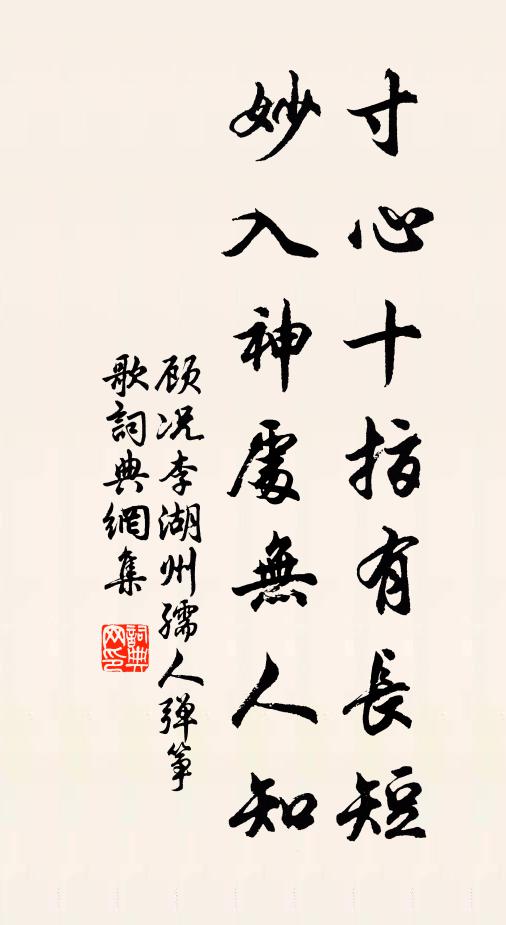 寸心十指有長短
妙入神處無人知
顾况李湖州孺人弹筝
歌詞典網集
詞典网印